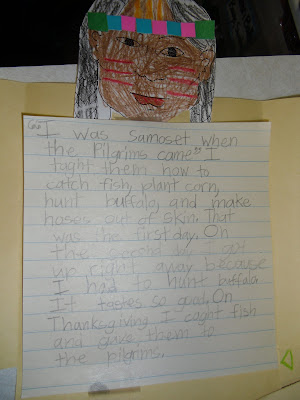 I was Samoset when
the Pilgrims came. I
taght them how to
catch fish, plant corn,
hunt buffalo, and make
hoses out of skin. That
was the first day. On
the second day got
up right away because
I had to hunt buffalo
It tastes so goal. On
Thanksgiving I caght fish
and gave them to
the pilgrims.